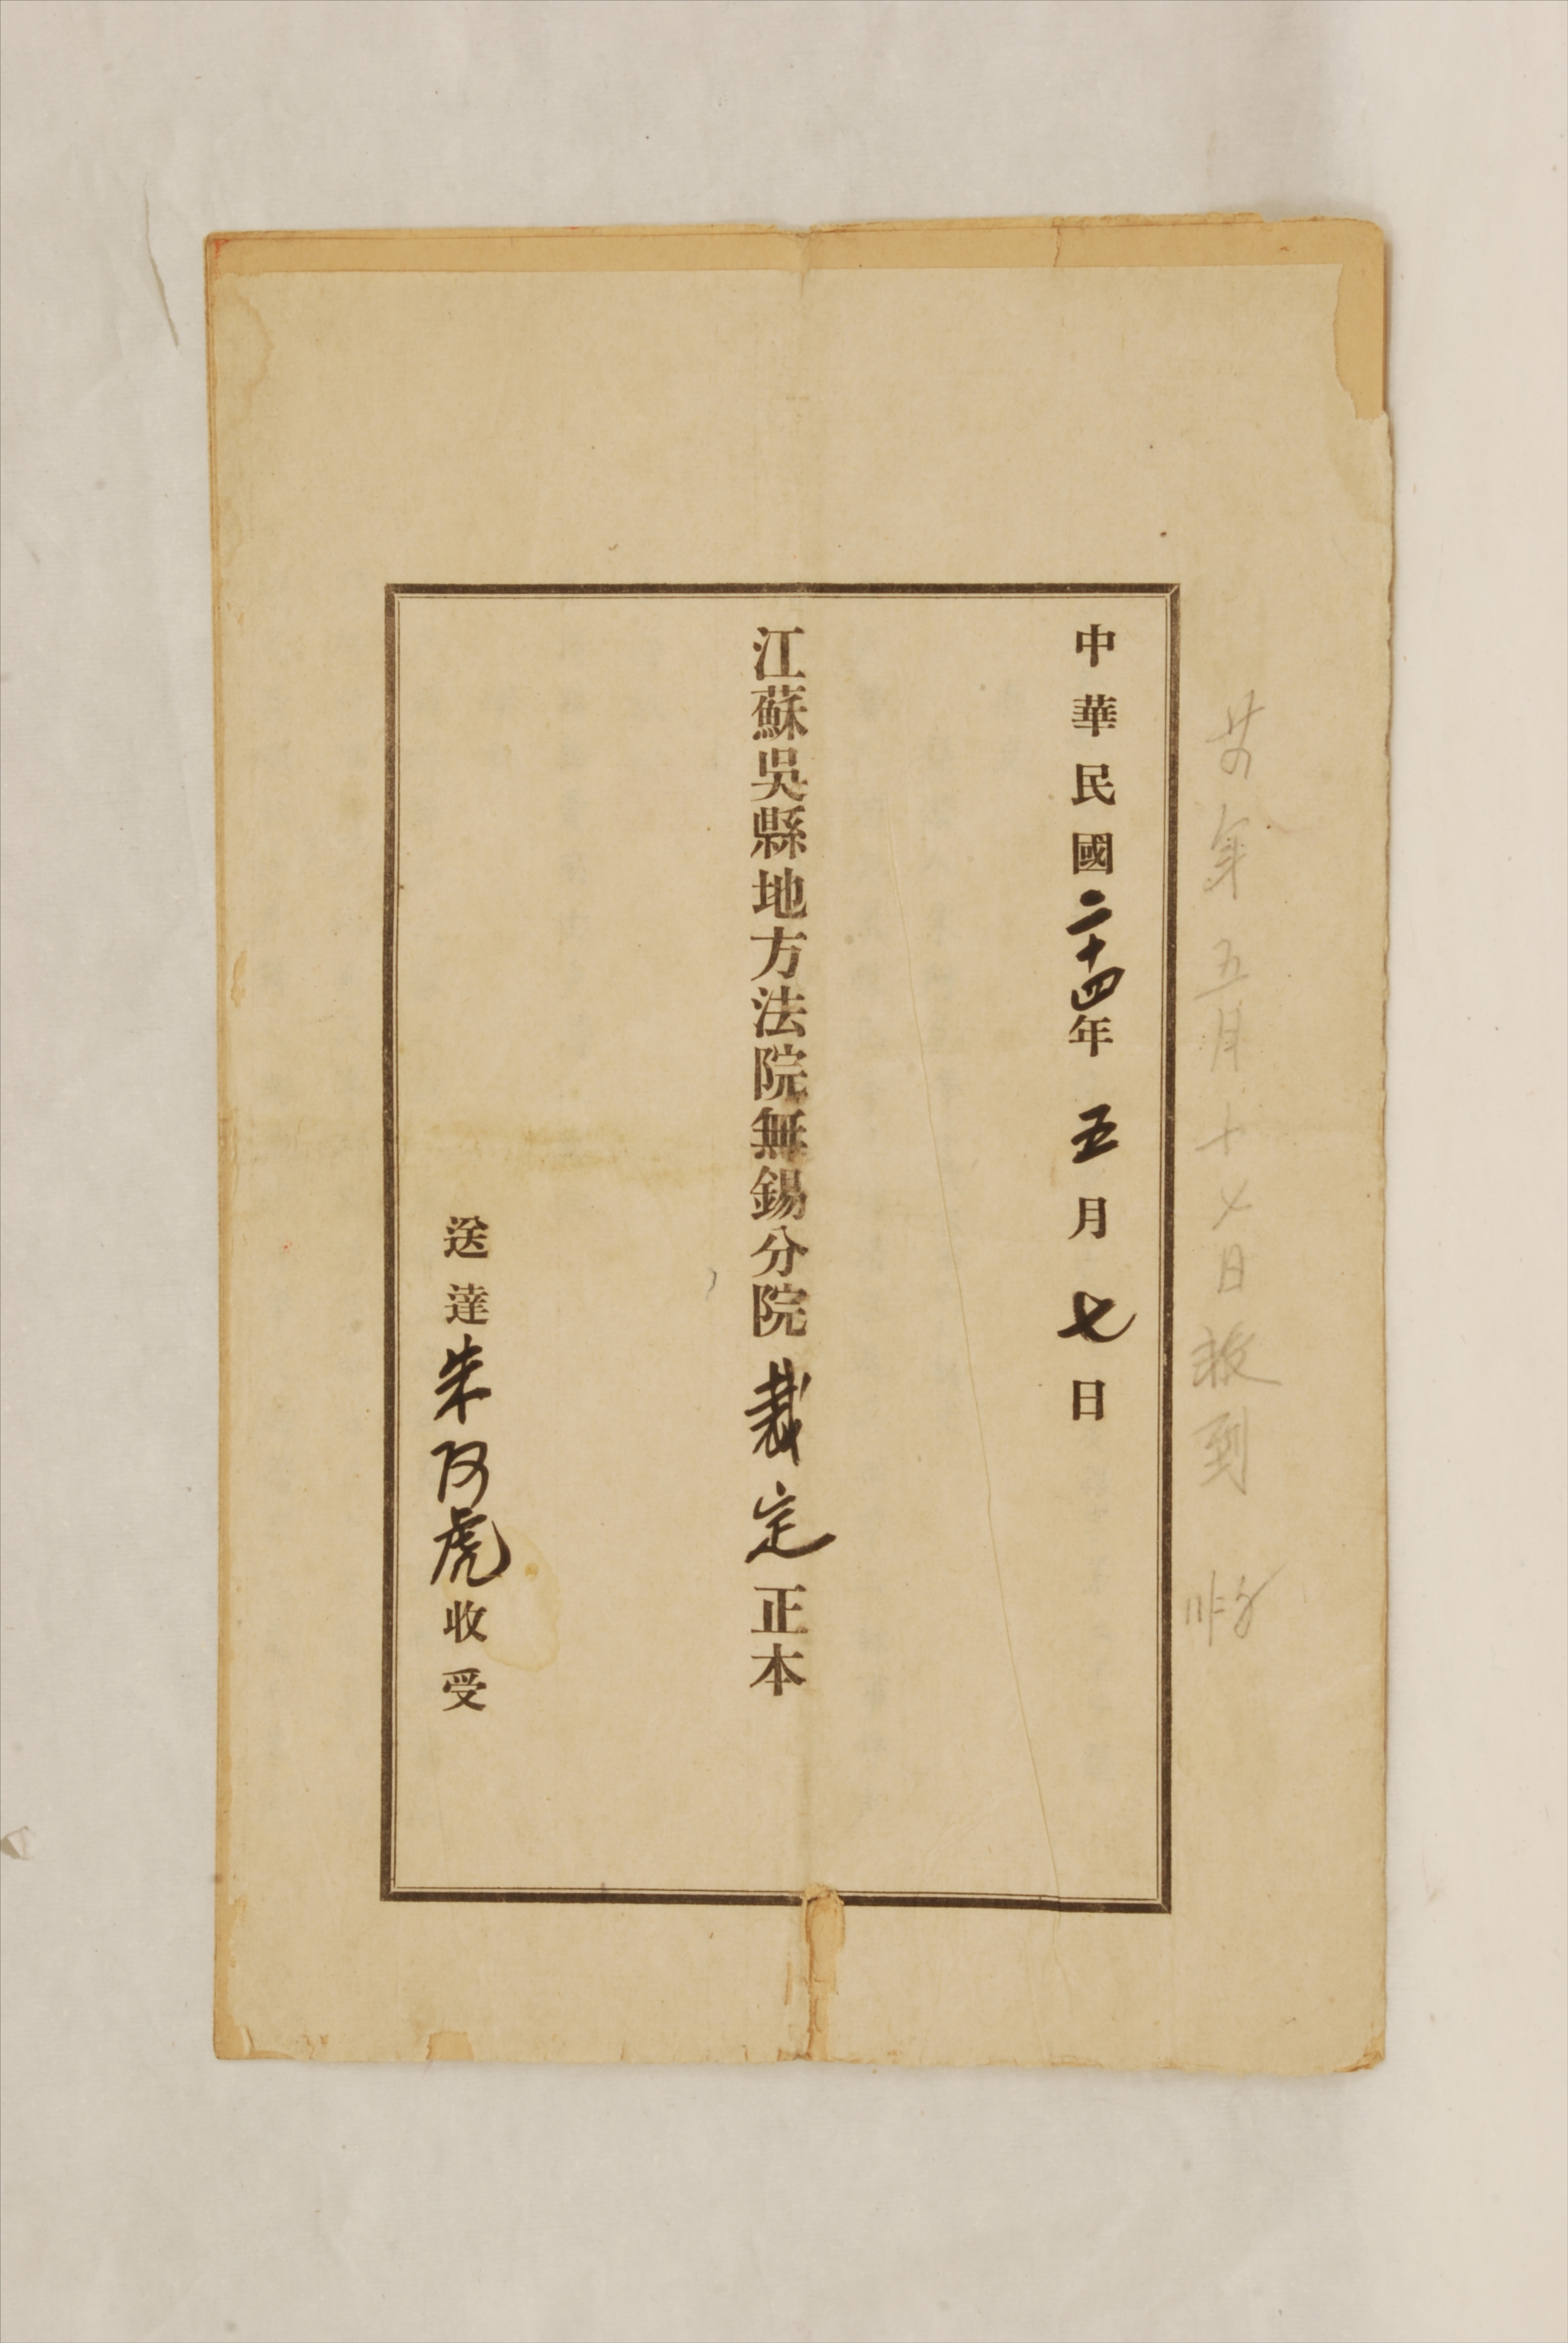 廿四年五月十七日接到
中華民國二十四年五月七日
江蘇吳縣地方法院無錫分院裁定正本
送達朱阿虎收受